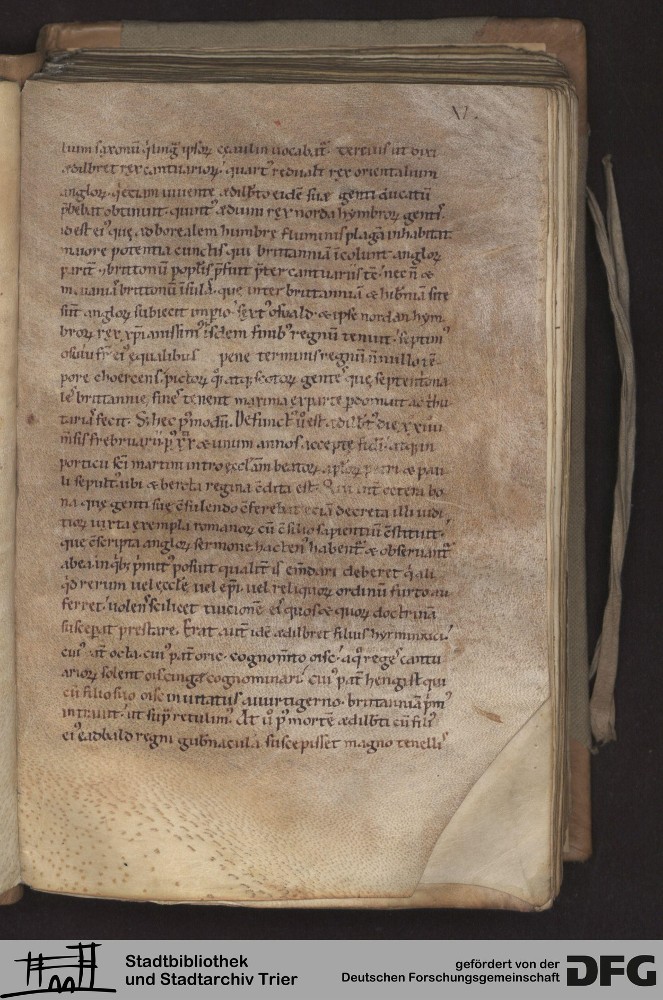 XV.
lium saxonū q̄ lingᵃ ip̄soꝝ ceaulin uocabat᷑. tertius ut dixi
ædilbret rex cantuarioꝝ. quartꝰ reduald rex orientalium
angloꝝ. q̄ etiam uiuente ædilbto eidē suę genti ducatū
p̄bebat obtinuit. quintꝰ æduini rex nordanhymbroꝝ gentis.
id est eiꝰ quę ad borealem humbre fluminis plagā inhabitat
maiore potentia cunctis qui brittanniā incolunt angloꝝ
parit᷑ ⁊ brittonū populis p̄fuit p̄ter cantuariis tē. necñ &
meuanias brittonū insulas. que inter brittanniā & hibniā site
sūt angloꝝ subiecit impio. sextꝰ osuald & ipse nordanhym
broꝝ rex xp̄ianissimꝰ isdem finibꝰ regnū tenuit. septimꝰ
osuiu fr̄ eiꝰ equalibus pene terminis regnū nonnullo tē
pore choercens. pictoꝝ q̄ atq; scotoꝝ gentes que septentriona
les brittannie fines tenent maxima ex parte p̄domuit ac tribu
tarias fecit. S; hec p̄ modū. Defunctꝰ ū est ædilbtꝰ die xxiiii
mensis frebruarii. p̄ xx & unum annos accepte fidei. atq; in
porticu sc̄i martini intro ęcclam beatoꝝ aploꝝ petri & pau
li sepultꝰ. ubi & berhta regina condita est. Qui int᷑ cetera bo
na que genti suę consulendo conferebat. etiā decreta illi iudi
tioꝝ iuxta exempla romanoꝝ cū consilio sapientiū constituit.
que conscripta angloꝝ sermone hactenꝰ habent᷑ & obseruant᷑
ab ea. in qibꝰ p̄mitꝰ posuit qualit᷑ is emdari deberet q̄ ali
qd rerum uel eccle. uel ep̄i. uel reliquoꝝ ordinū furto au
ferret. uolens scilicet tuicione eis quos & quoꝝ doctrinā
susceperat prestare. Erat aut̄ idē ædilbret filius hyrminrici.
cuiꝰ pat᷑ octa. cuiꝰ pat᷑ oric. cognomto oisc. a q̄ reges cantu
arioꝝ solent oiscingas cognominari. cuiꝰ pat᷑ hengist. qui
cū filio suo oisc inuitatus a uurtigerno. brittanniā p̄mꝰ
intrauit. ut sup̄ retulimꝰ. At ū p̄ mortē ædilbti cū filiꝰ
eiꝰ eadbald regni gubnacula suscepisset magno tenellis
Stadtbibliothek
und Stadtarchiv Trier
gefördert von der
Deutschen Forschungsgemeinschaft
DFG